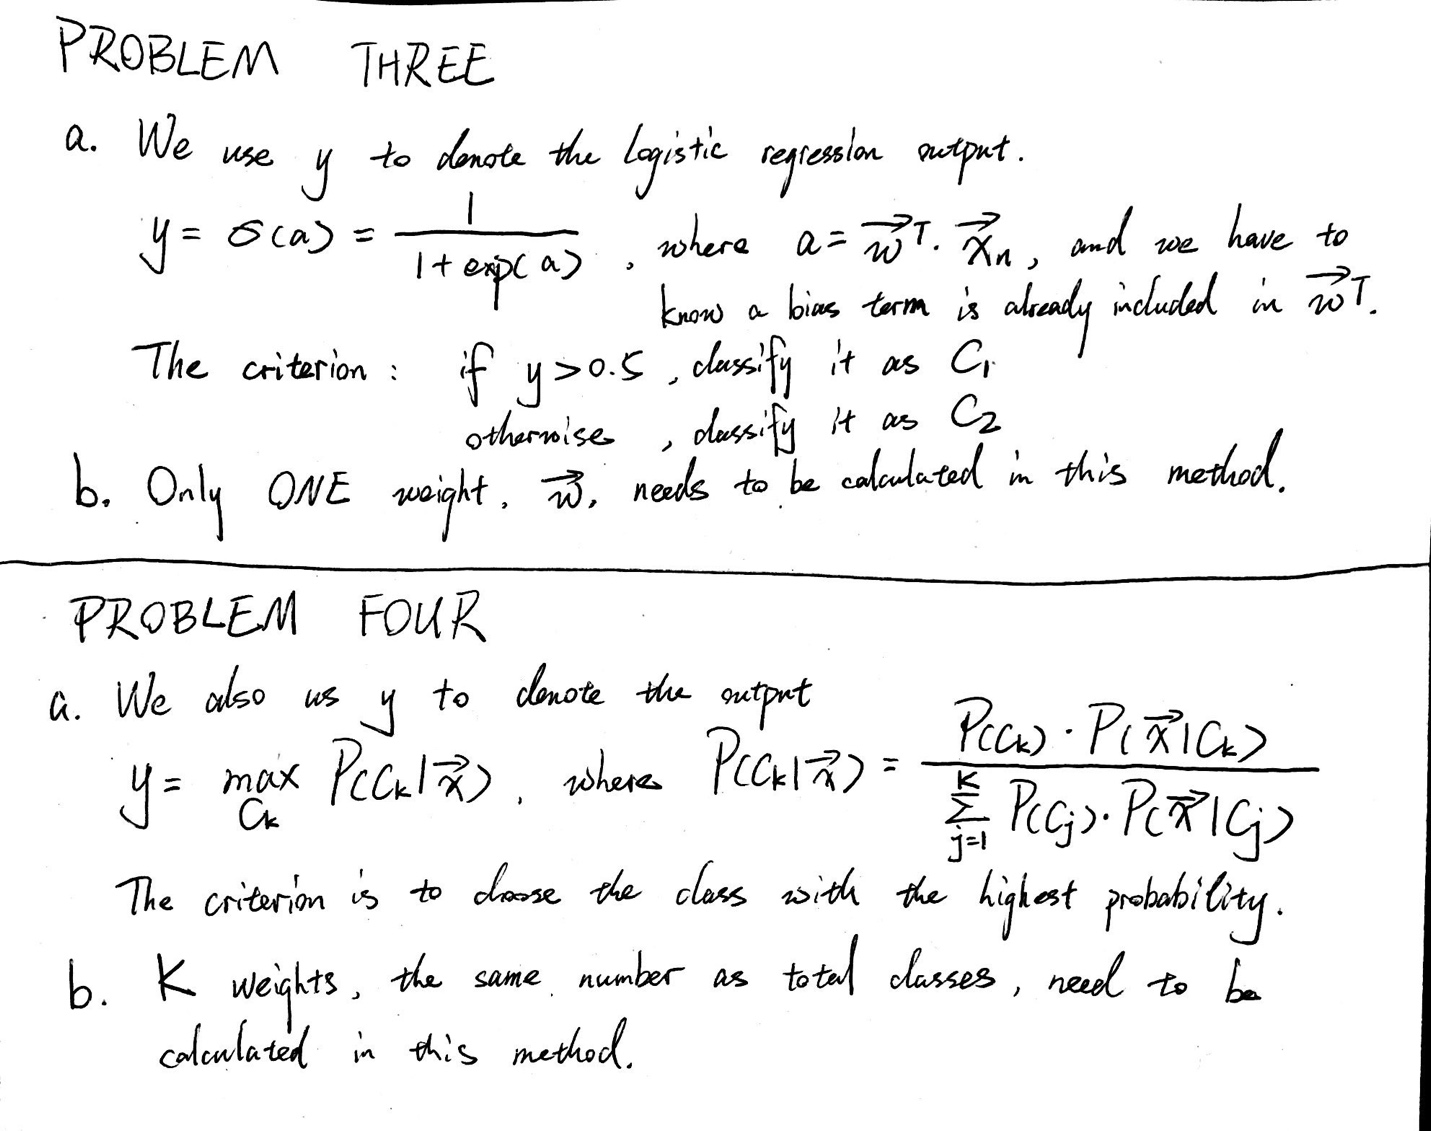 PROBLEM THREE
a. We use y to denote the logistic regression output.
y = σ(a) = 1 / (1 + exp(a)), where a = w⃗ᵀ · x⃗ₙ, and we have to
know a bias term is already included in w⃗ᵀ.
The criterion: if y > 0.5, classify it as C₁
otherwise, classify it as C₂
b. Only ONE weight, w⃗, needs to be calculated in this method.
PROBLEM FOUR
a. We also us y to denote the output
y = max_{Cₖ} P(Cₖ|x⃗), where P(Cₖ|x⃗) = P(Cₖ) · P(x⃗|Cₖ) / Σ_{j=1}^{K} P(Cⱼ) · P(x⃗|Cⱼ)
The criterion is to choose the class with the highest probability.
b. K weights, the same number as total classes, need to be
calculated in this method.